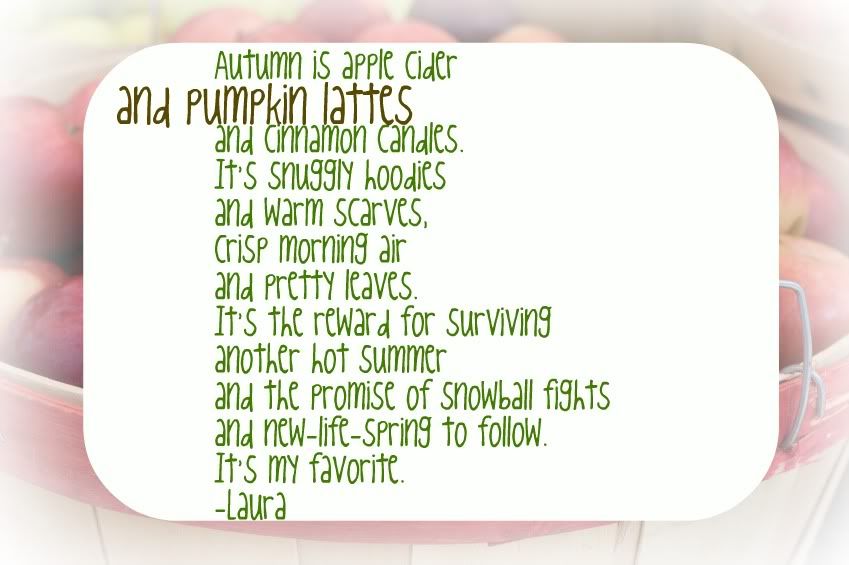 Autumn is apple cider
and pumpkin lattes
and cinnamon candles.
It's snuggly hoodies
and warm scarves,
crisp morning air
and pretty leaves.
It's the reward for surviving
another hot summer
and the promise of snowball fights
and new-life-spring to follow.
It's my favorite.
-Laura